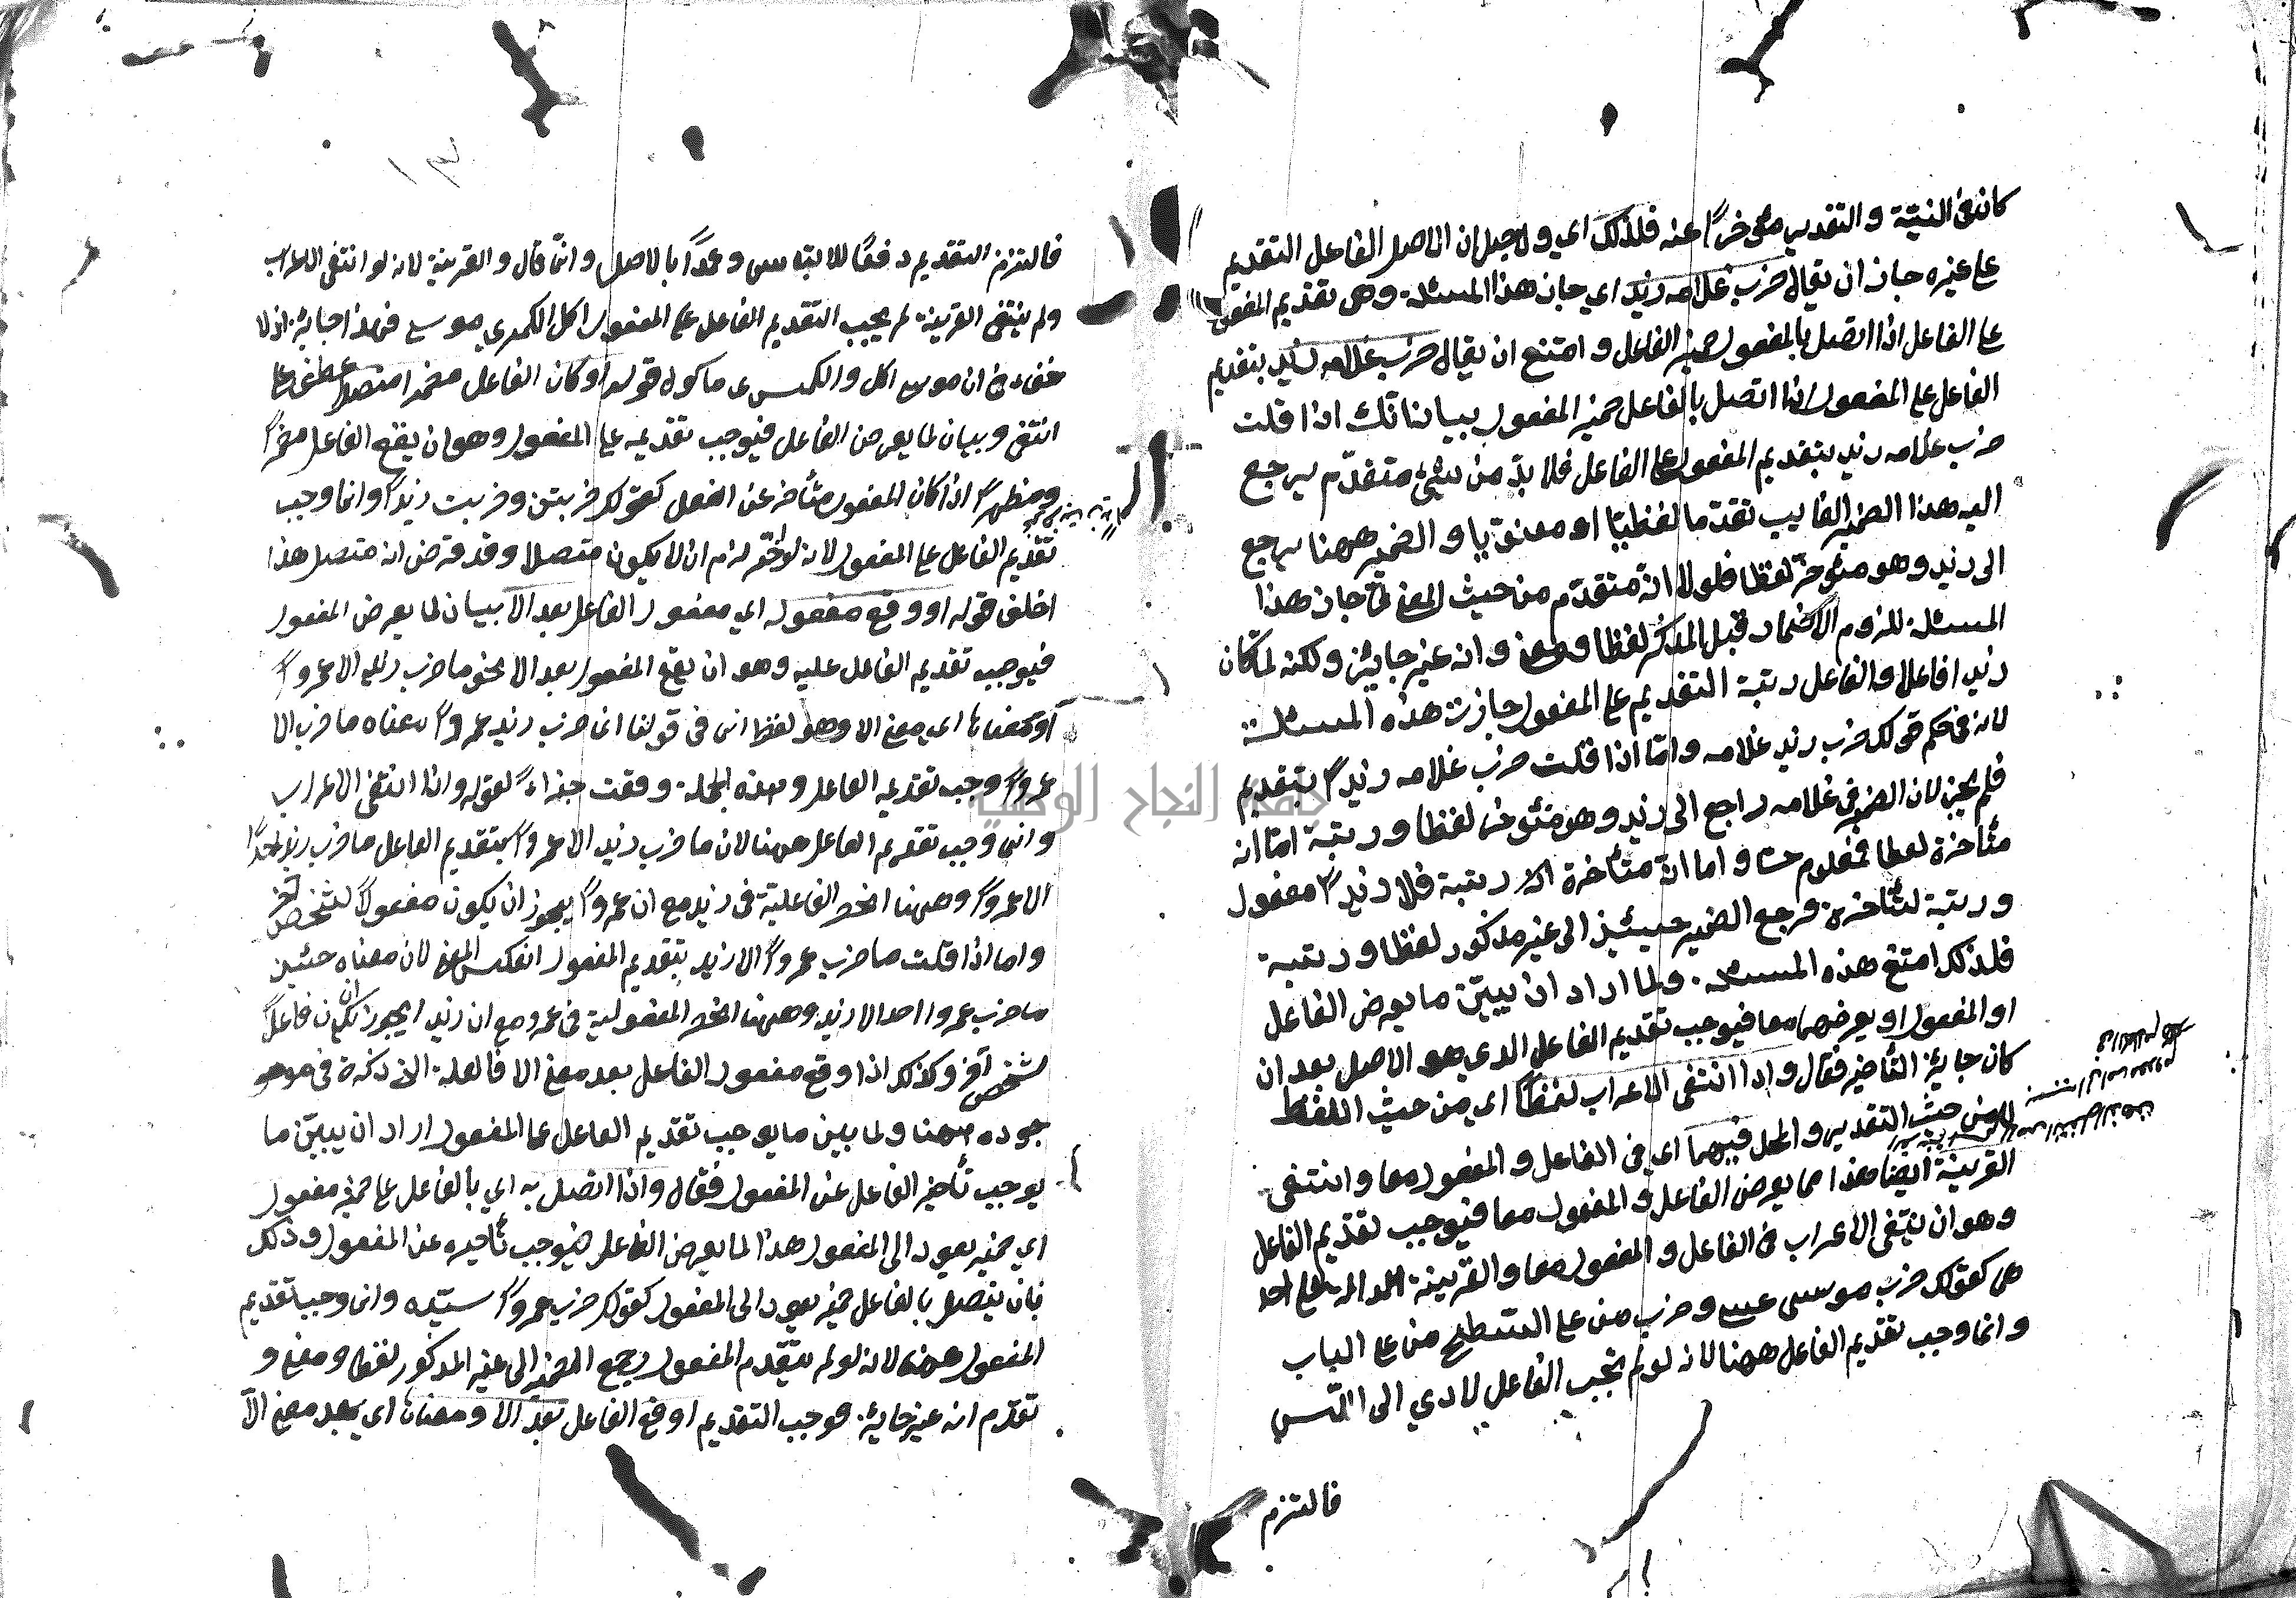 كان في النية والتقدير مؤخرًا عنه فلذلك اي ولاجل ان الاصل الفاعل التقديم
على غيره جاز ان يقال ضرب غلامه زيد اي جاز هذا المسئلة وهي تقديم المفعول
على الفاعل اذا اتصل بالمفعول ضمير الفاعل وامتنع ان يقال ضرب غلامه زيد بتقديم
الفاعل على المفعول اذا اتصل بالفاعل ضمير المفعول بيانا انك اذا قلت
ضرب غلامه زيد بتقديم المفعول على الفاعل فلا بدّ من شيئ متقدّم يرجع
اليه هذا الضمير الغايب تقدما لفظيّا او معنويا والضمير ههنا يرجع
الى زيد وهو مئوخر لفظا فلولا انه متقدّم من حيث المعنى لما جاز هذا
المسئلة للزوم الاضمار قبل الذكر لفظا ومعنى وانه غير جايز ولكنه لمّا كان
زيد افاعلا والفاعل رتبة التقديم على المفعول جازت هذه المسئلة
لانه في حكم قولك ضرب زيد غلامه وامّا اذا قلت ضرب غلامه زيدًا بتقديم
فلم يجز لان الضمير في غلامه راجع الى زيد وهو مئوخر لفظا ورتبة امّا انه
متأخرة لفظا فمعلوم حسّا واما انه متأخرة رتبة فلان زيدًا مفعول
ورتبة لتأخره فرجع الضمير حينئذ الى غير مذكور لفظا ورتبة
فلذلك امتنع هذه المسئلة. ولما اراد ان يبيّن ما يعرض الفاعل
او المفعول او يعرضهما معا فيوجب تقديم الفاعل الذي هو الاصل بعد ان
كان جايز التأخير فقال واذا انتفى الاعراب لفظًا اي من حيث اللفظ
لا من حيث التقدير والمحل فيهما اي في الفاعل والمفعول معا وانتفى
القرينة ايضا هذا مما يعرض الفاعل والمفعول معا فيوجب تقديم الفاعل
وهو ان ينتفى الاعراب في الفاعل والمفعول معا والقرينة الدالة على احد
هما كقولك ضرب موسى عيسى وضرب من على السّطح من على الباب
وانما وجب تقديم الفاعل ههنا لانه لو لم يجب الفاعل لادي الى اللّبس
فالتزم
١٣
فالتزم التقديم دفعًا للالتباس وعملًا بالاصل وانّما قال والقرينة لانه لو انتفى الاعراب
ولم ينتفى القرينة لم يجب التقديم الفاعل على المفعول اكل الكمثري موسى فهذا جايز اذ لا
خفاء في ان موسى اكل والكمثرى ماكول قوله او كان الفاعل مضمرا متصلا عطف على
انتفى وبيان لما يعرض الفاعل فيوجب تقديمه على المفعول وهو ان يقع الفاعل مضمرًا
ومظهرًا اذا كان المفعول متأخر عن الفعل كقولك ضربتن وضربت زيدًا وانما وجب
تقديم الفاعل على المفعول لانه لو اخّر لزم ان لا يكون متصلا وقد فرض انه متصل هذا
اخلف قوله او وقع مفعوله اي مفعول الفاعل بعد الا بيان لما يعرض المفعول
فيوجب تقديم الفاعل عليه وهو ان يقع المفعول بعد الا نحو ما ضرب زيد الا عمروًا
او معناها اي معنى الا وهو لفظ انما في قولنا انما ضرب زيد عمروًا معناه ما ضرب الا
عمروًا وجب تقديمه الفاعل وهذه الجملة وقعت جزاءً لقوله واذا انتفى الاعراب
وانما وجب تقديم الفاعل ههنا لان ما ضرب زيد الا عمروًا بتقديم الفاعل ما ضرب زيد احدًا
الا عمروًا وههنا انحصر الفاعلية في زيد مع ان عمروًا يجوز ان يكون مفعولًا لشخص آخر
واما اذا قلت ما ضرب عمروًا الا زيد بتقديم المفعول انعكس المعنى لان معناه حينئذ
ما ضرب عمروا احد الا زيد وههنا انحصر المفعولية في عمرو مع ان زيد ايجوز ان يكون فاعلًا
لشخص آخر وكذلك اذا وقع مفعول الفاعل بعد معنى الا فالعلة التي ذكره في موجو
جوده ههنا ولما بين ما يوجب تقديم الفاعل على المفعول اراد ان يبيّن ما
يوجب تأخير الفاعل عن المفعول فقال واذا اتصل به اي بالفاعل على ضمير مفعول
اي ضمير يعود الى المفعول هذا لما يعرض الفاعل فيوجب تأخيره عن المفعول وذلك
بان يتصل بالفاعل ضمير يعود الى المفعول كقولك ضرب عمروًا سيّده وانما وجب تقديم
المفعول ههنا لانه لو لم يتقدم المفعول يرجع الضمير الى غير المذكور لفظا ومعنى و
تقدّم انه غير جايز فوجب التقديم او وقع الفاعل بعد الا ومعناها اي بعد معنى الاّ